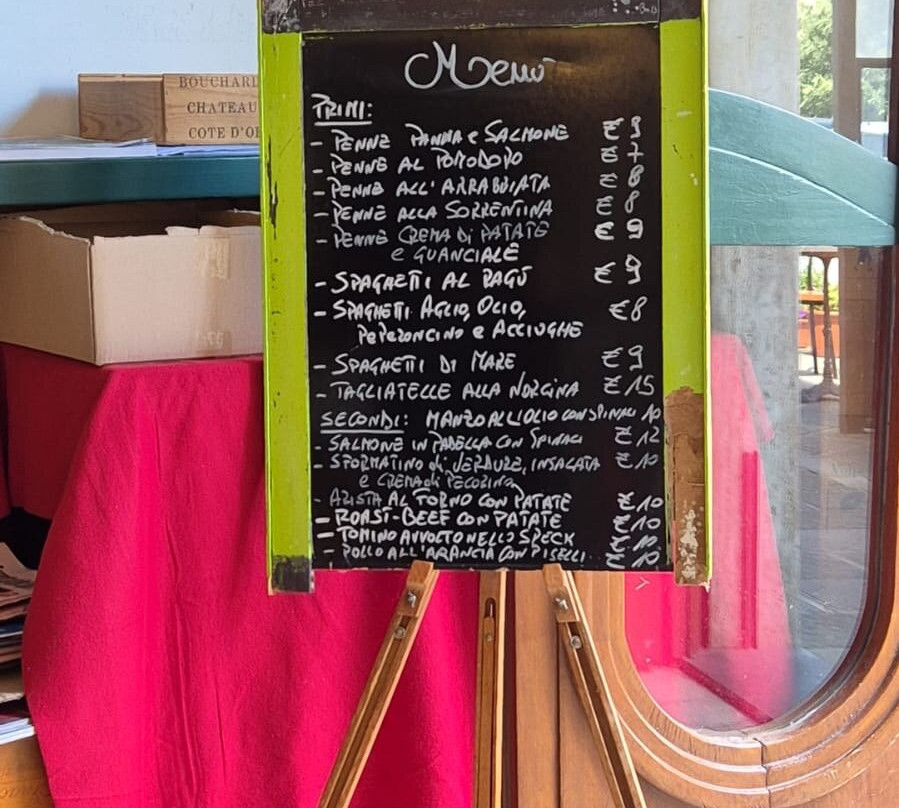 BOUCHARD
CHATEAU
COTE D'O
Menù
PRIMI:
- PENNE PANNA e SALMONE € 9
- PENNE AL POMODORO € 7
- PENNE ALL'ARRABBIATA € 8
- PENNE ALLA SORRENTINA € 8
- PENNE CREMA di PATATE € 9
e GUANCIALE
- SPAGHETTI AL RAGÙ € 9
- SPAGHETTI AGLIO, OLIO, €8
PEPERONCINO e ACCIUGHE
- SPAGHETTI DI MARE € 9
- TAGLIATELLE ALLA NORCINA € 15
SECONDI: MANZO ALL'OLIO CON SPINACI 10
- SALMONE IN PADELLA CON SPINACI € 12
- SFORMATINO di VERDURE, INSALATA € 10
e CREMA di PECORINO
- ARISTA AL FORNO CON PATATE € 10
- ROAST-BEEF CON PATATE € 10
- TOMINO AVVOLTO NELLO SPECK € 10
- POLLO ALL'ARANCIA CON PISELLI € 10